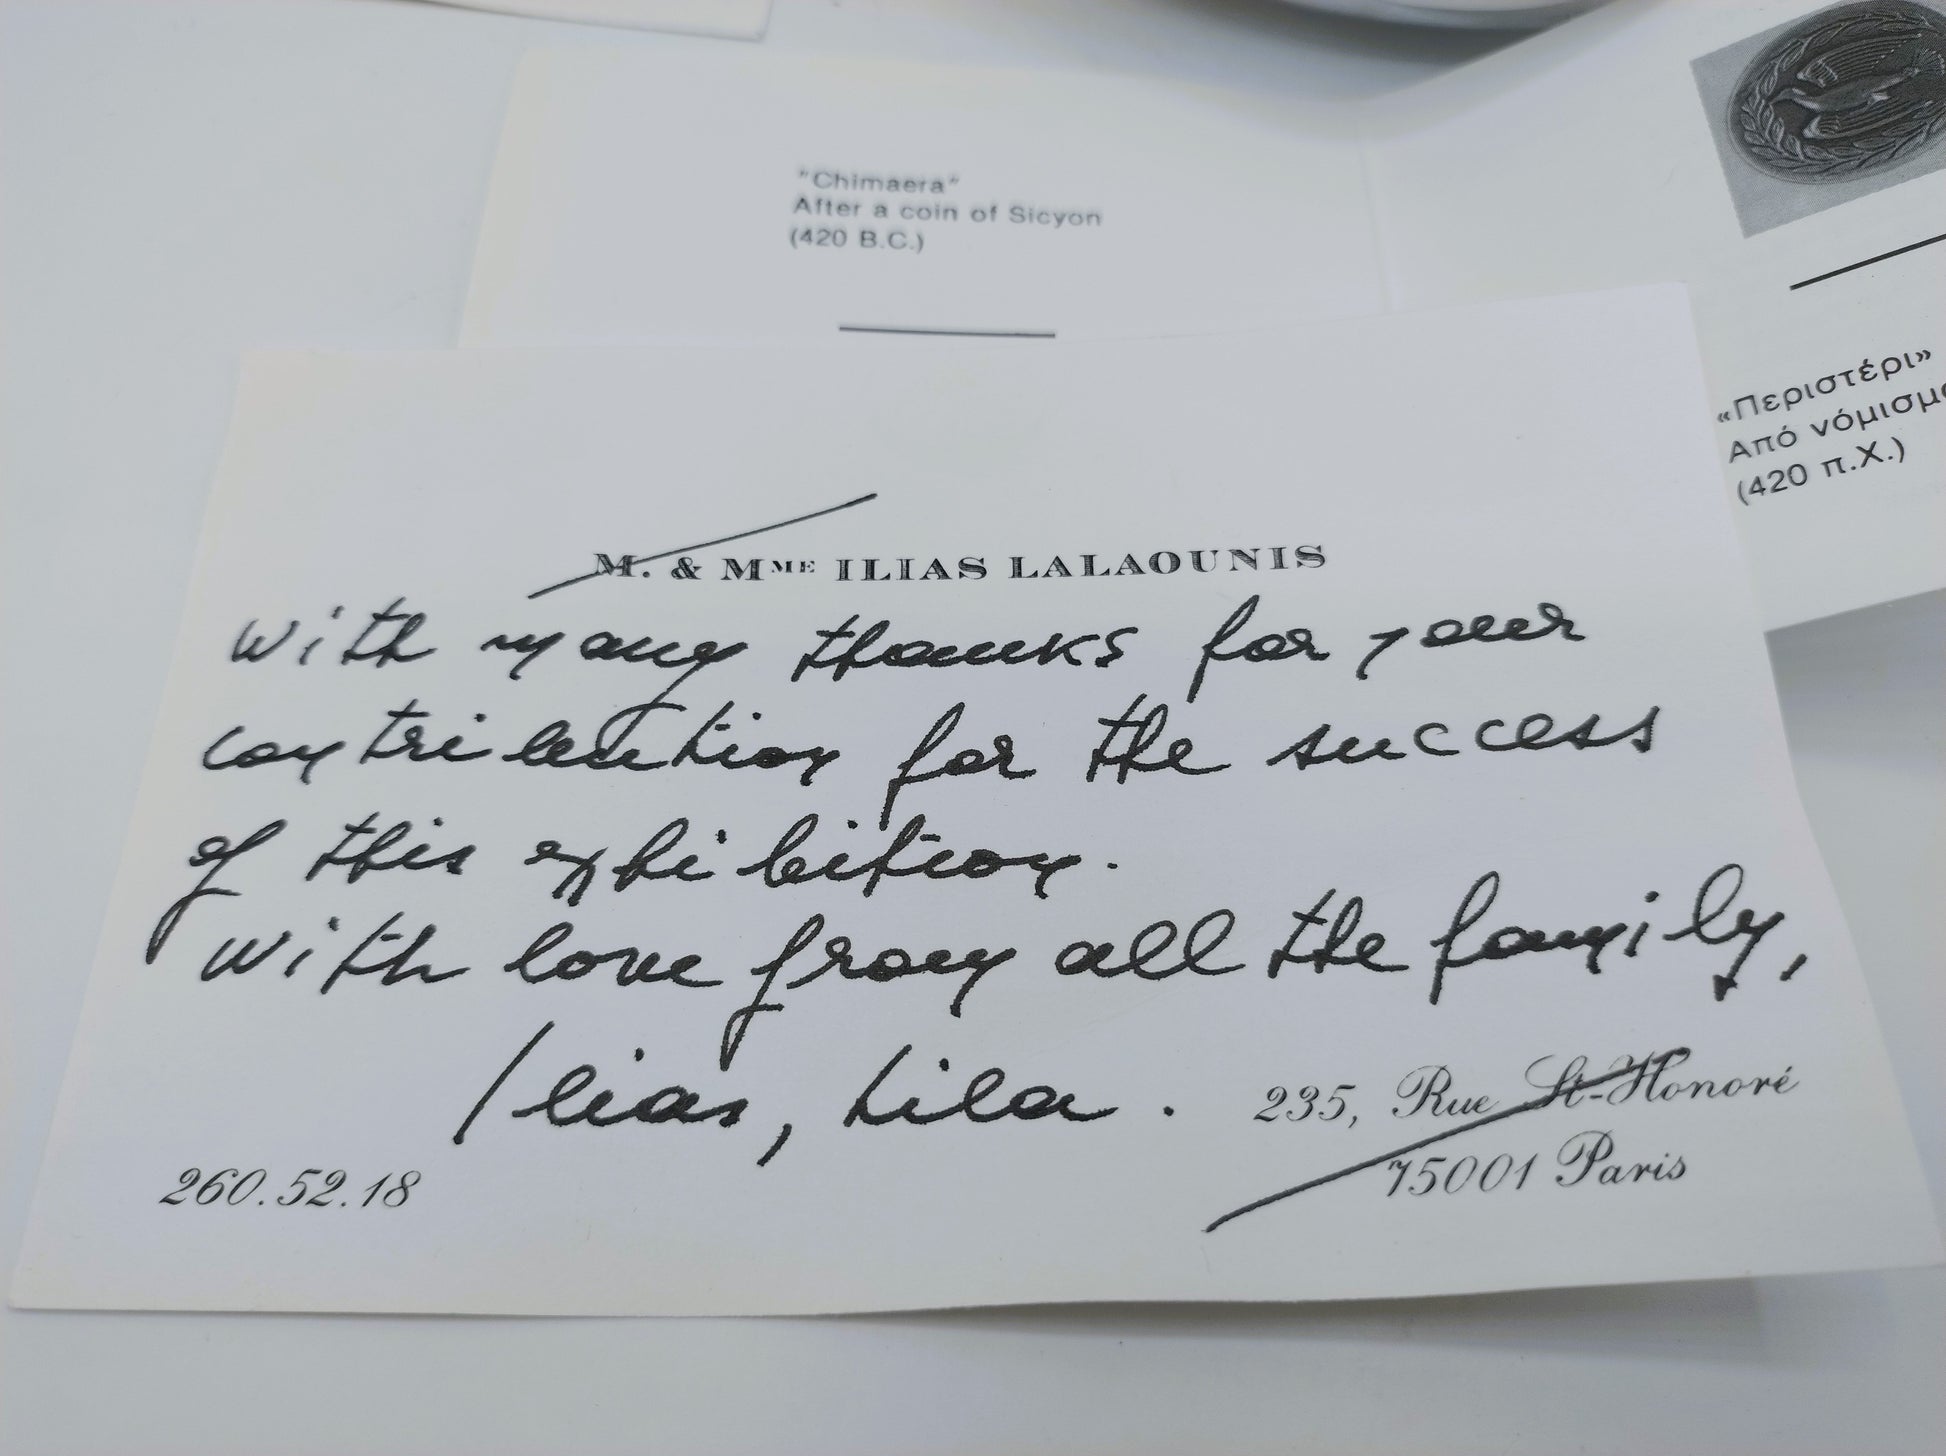 "Chimaera"
After a coin of Sicyon
(420 B.C.)
«Περιστέρι»
Από
(420 π.Χ.)
M. & MME ILIAS LALAOUNIS
with many thanks for your
contribution for the success
of this exhibition.
with love from all the family,
Ilias, Lila.
235, Rue St-Honoré
75001 Paris
260.52.18